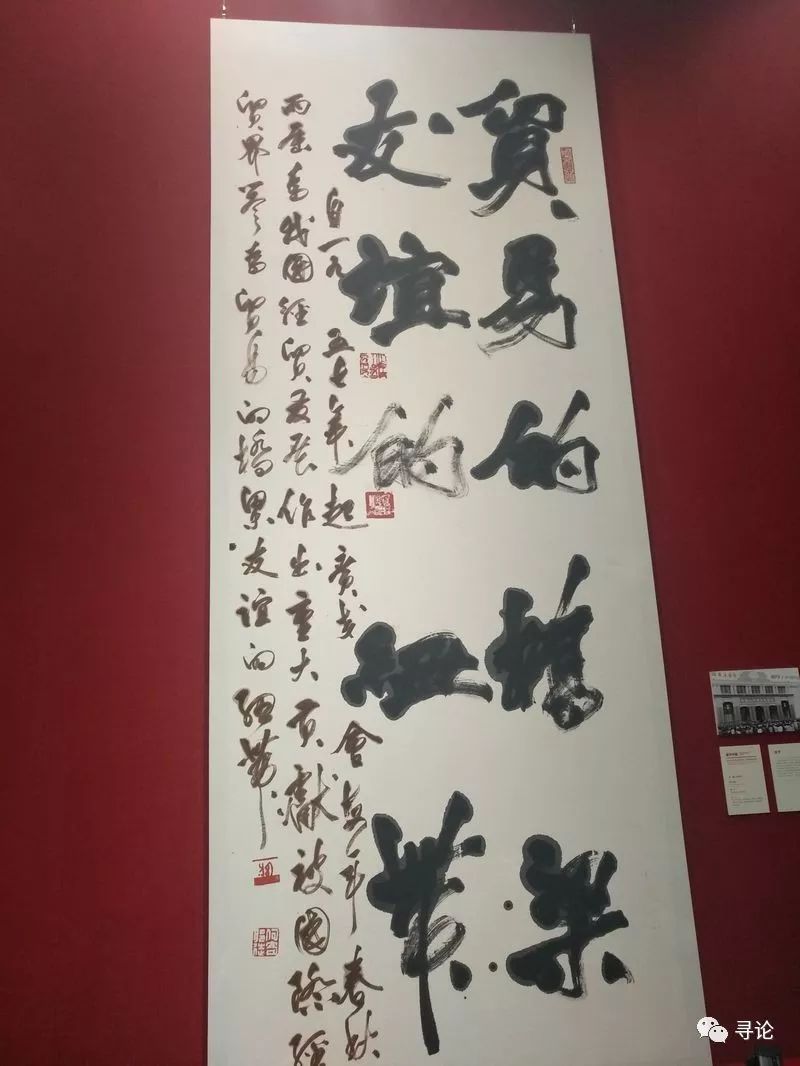 貿易的橋梁
友誼的紐帶
自一九五七年起廣交會每年春秋
兩屆為我國經貿發展作出重大貢獻被國際經
貿界譽為貿易的橋梁友誼的紐帶
寻论